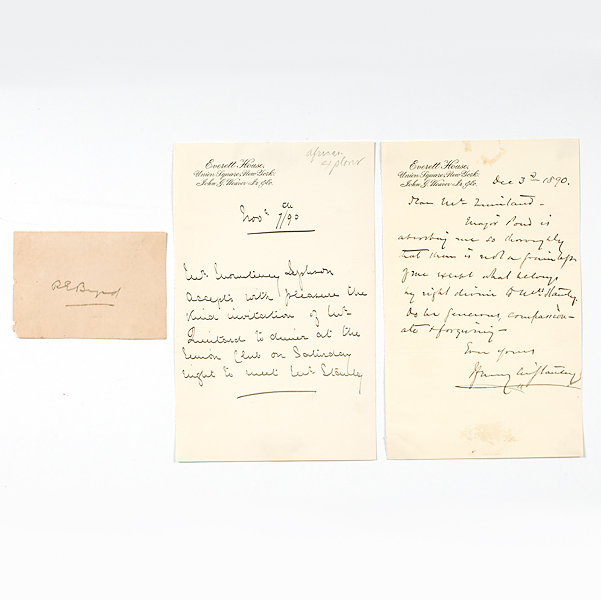 R E Byrd
african
explorer
Everett House,
Union Square, New York.
John G. Weaver Jr. & Co.
Novr 7th/90
Mr Mounteney Jephson
accepts with pleasure the
kind invitation of Mr
Quintard to dinner at the
Union Club on Saturday
night to meet Mr Stanley
Everett House,
Union Square, New York.
John G. Weaver Jr. & Co.
Dec 3rd 1890.
Dear Mr Quintard –
Major Pond is
absorbing me so thoroughly
that there is not a
of me except what belongs
by right divine to Mrs Stanley.
Do be generous, compassion-
ate & forgiving –
Ever Yours
Henry M Stanley